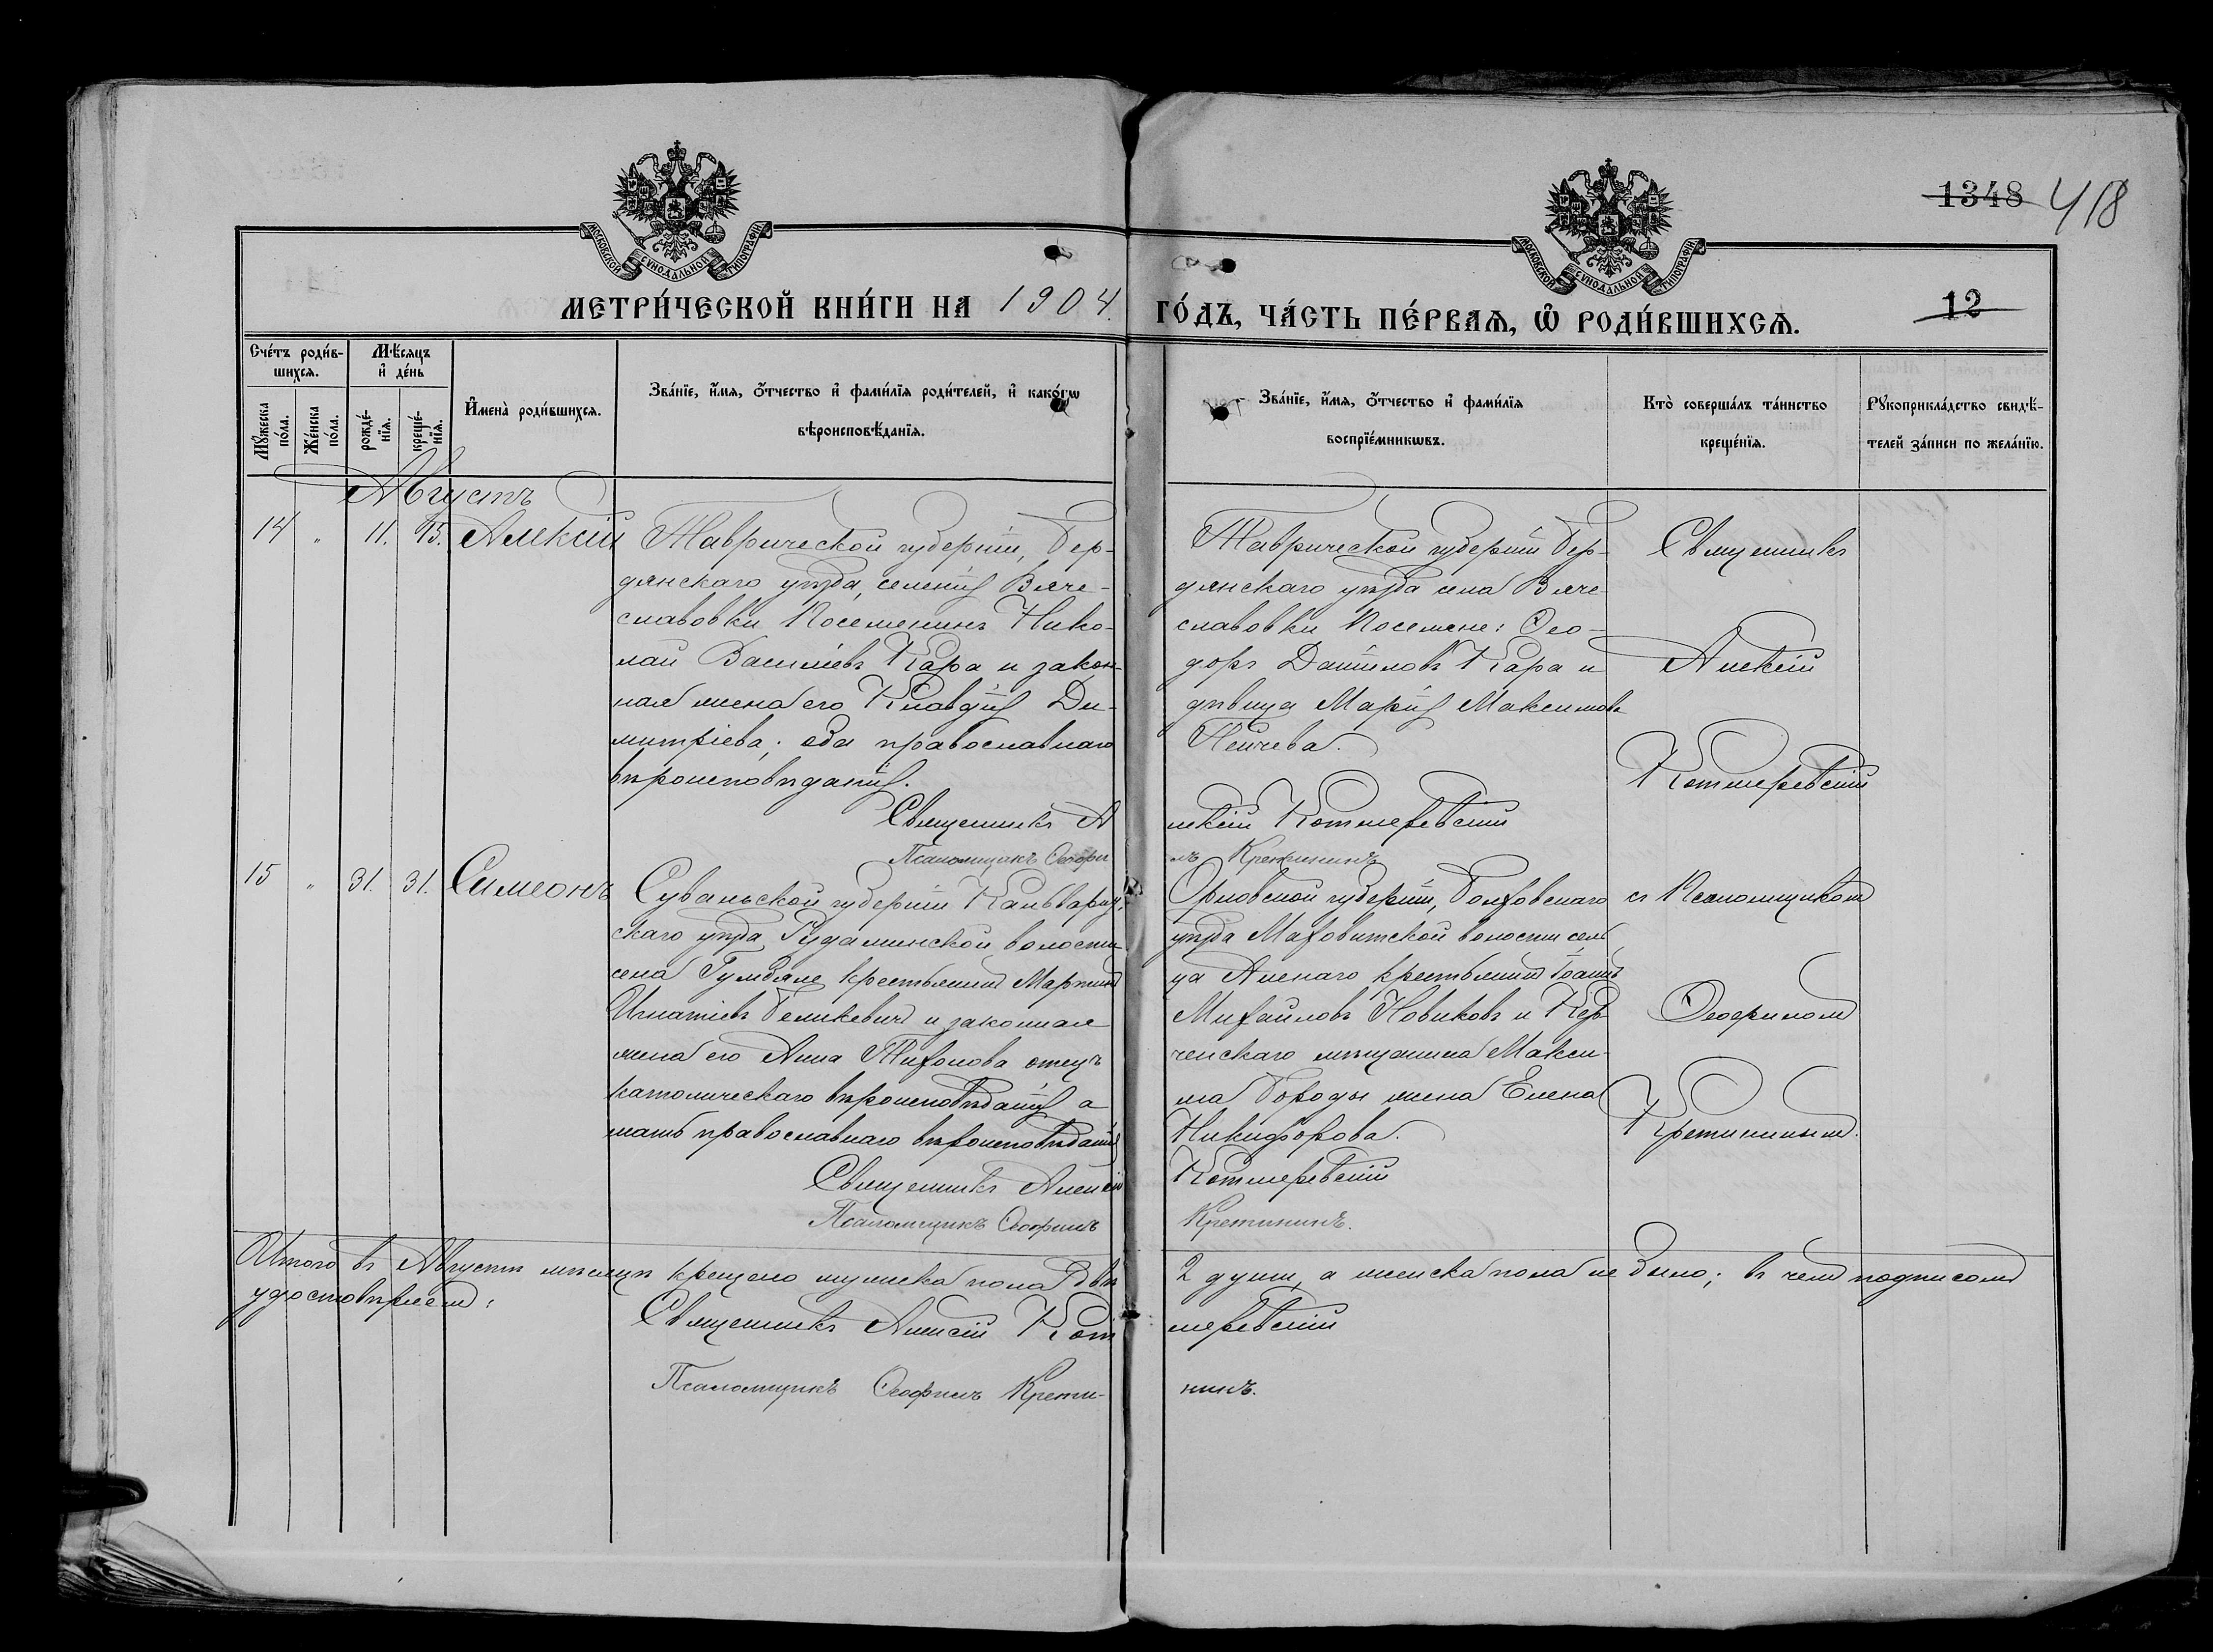 1348 418
МОСКОВСКОЙ СѴНОДАЛЬНОЙ ТИПОГРАФІИ
МОСКОВСКОЙ СѴНОДАЛЬНОЙ ТИПОГРАФІИ
МЕТРИ́ЧЕСКОЙ КНИ́ГИ НА 1904. ГО́ДЪ, ЧА́СТЬ ПЕ́РВАѦ, Ѡ҆ РОДИ́ВШИХСѦ. 12
Сче́тъ роди́в-
шихсѧ.
Мꙋ́жеска по́ла.
Же́нска по́ла.
Мѣ́сѧцъ и҆ де́нь
рожде́-нїѧ.
креще́-нїѧ.
И҆мена̀ роди́вшихсѧ.
Зва́нїе, и҆́мѧ, ѻ҆́тчество и҆ фами́лїѧ роди́телей, и҆ како́гѡ
вѣроисповѣ́данїѧ.
Зва́нїе, и҆́мѧ, ѻ҆́тчество и҆ фами́лїѧ
воспрїе́мникѡвъ.
Кто̀ соверша́лъ та́инство
креще́нїѧ.
Рꙋкоприкла́дство свидѣ́-
телей за́писи по жела́нїю.
Августъ
14 " 11. 15. Алексій
Таврической губерніи, Бер-
дянскаго уѣзда, селенія Вяче-
славовки Поселянинъ Нико-
лай Василіевъ Кара и закон-
ная жена его Клавдія Ди-
митріева; оба православнаго
вѣроисповѣданія.
Таврической губерніи Бер-
дянскаго уѣзда села Вяче
славовки Поселяне: Ѳео-
доръ Даниловъ Кара и
дѣвица Марія Максимов
Пейчева.
Священникъ
Алексій
Котляревскій
Священникъ Алексій Котляревскій
Псаломщикъ Ѳеофилъ Кретининъ
15 " 31. 31. Симеонъ
Сувалкской губерніи Кальварій
скаго уѣзда Рудаминской волости
села Гумбале крестьянинъ Мартинъ
Игнатіевъ и законная
жена его Анна Тихонова отецъ
католическаго вѣроисповѣданія а
мать православнаго вѣроисповѣданія
Орловской губерніи, Болховскаго
уѣзда волости сель
ца крестьянинъ Іоаннъ
Михайловъ Новиковъ и Кер
ченскаго мѣщанина Макси-
ма Бороды жена Елена
Никифорова.
съ Псаломщикомъ
Ѳеофиломъ
Кретининымъ.
Священникъ Алексій Котляревскій
Псаломщикъ Ѳеофилъ Кретининъ.
Итого въ Августѣ мѣсяцѣ крещено мужеска пола двѣ 2 души, а женска пола не было; въ чемъ подписомъ
удостовѣряемъ:
Священникъ Алексій Котляревскій
Псаломщикъ Ѳеофилъ Крети-нинъ.